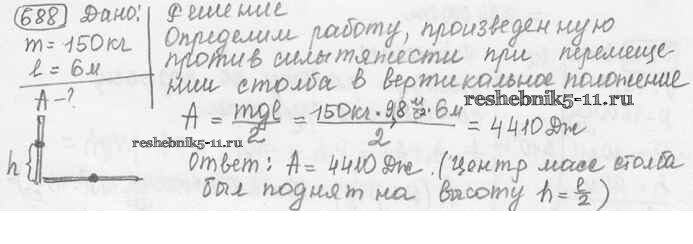 688 Дано: Решение
m = 150 кг Определим работу, произведенную
l = 6 м против силы тяжести при перемеще-
A - ? нии столба в вертикальное положение
reshebnik5-11.ru
A = mgl/2 = 150 кг · 9,8 м/с² · 6 м / 2 = 4410 Дж
reshebnik5-11.ru
h
Ответ: A = 4410 Дж. (Центр масс столба
был поднят на высоту h = l/2)